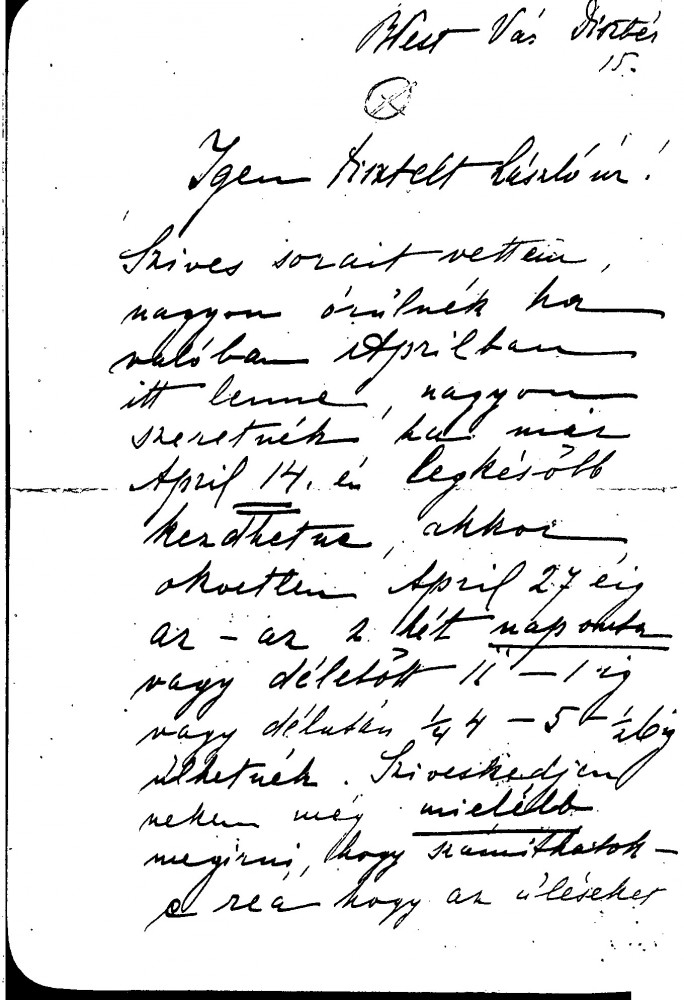 BPest Vás Disztér
15.
Igen tisztelt László úr!
Szives sorait vettem,
nagyon örülnék ha
valóban Aprilban
itt lenne, nagyon
szeretnék ha már
April 14. én legkésőbb
kezdhetne, akkor
okvetlen April 27 éig
az - az 2 hét naponta
vagy délelőtt 11 - 1 ig
vagy délután 1/4 4 - 5 - 1/2 6 ig
ülhetnék. Sziveskedjen
nekem még mielébb
megirni, hogy számithatok -
e reá hogy az üléseket